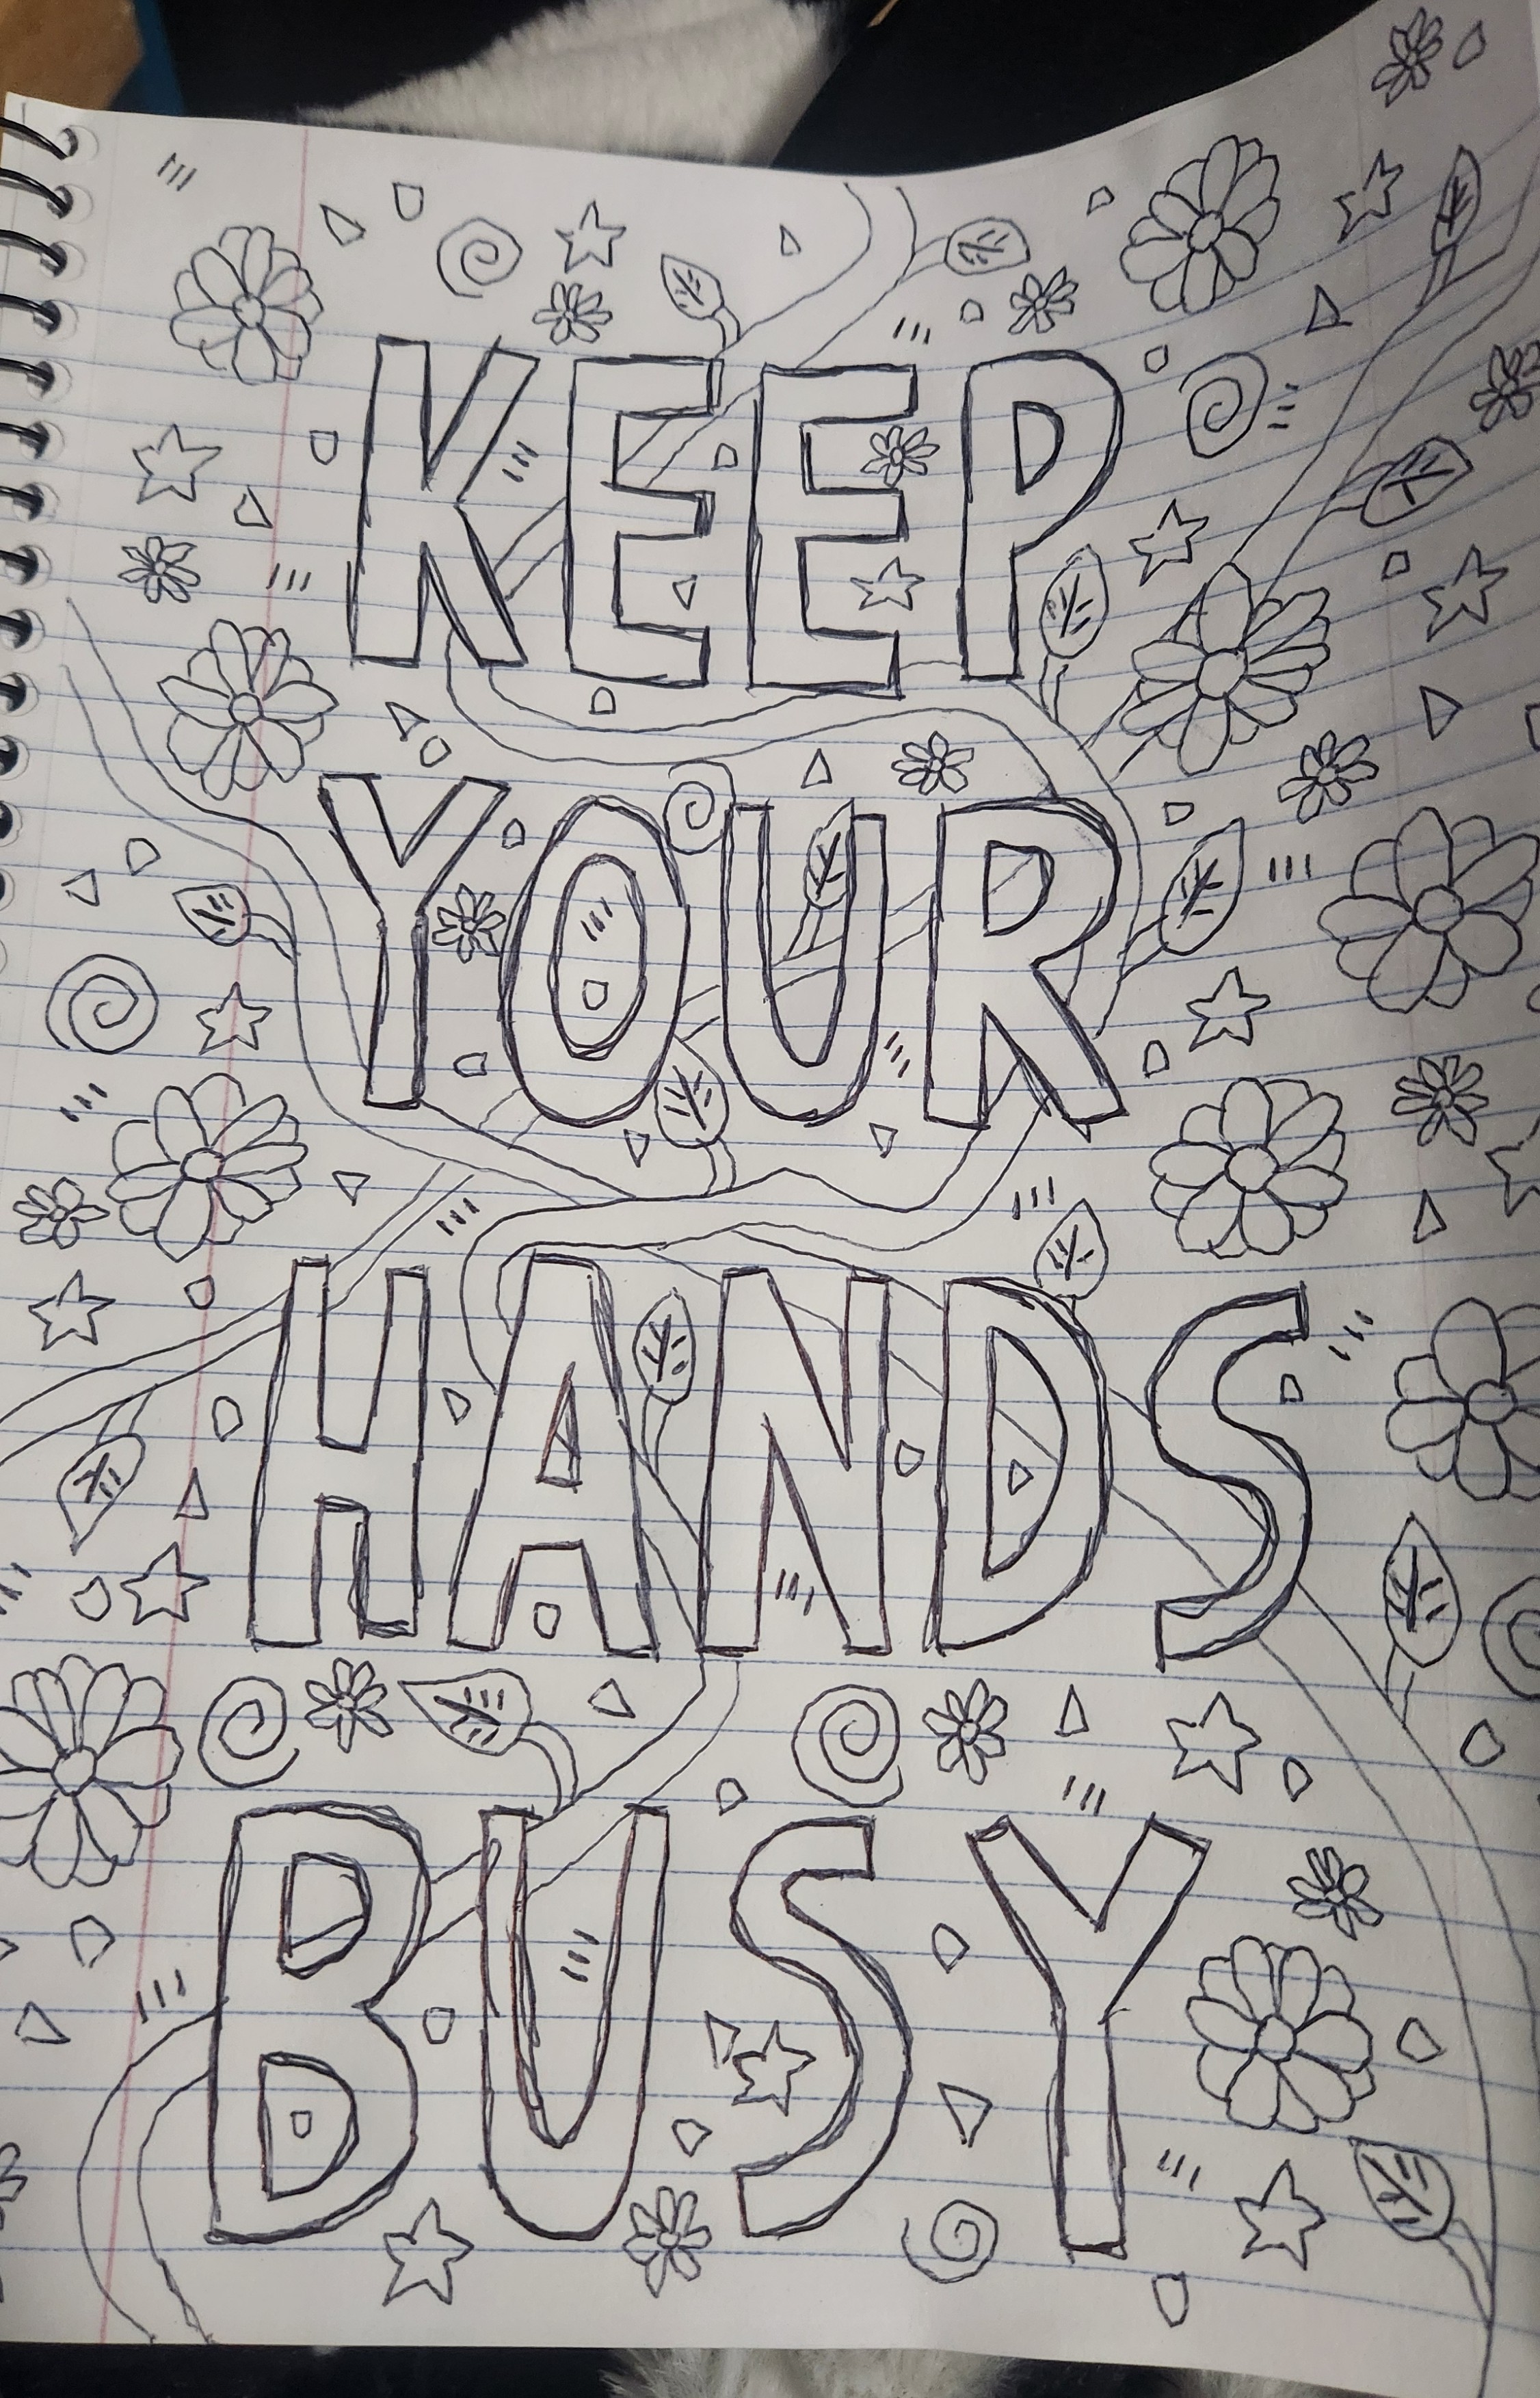 KEEP
YOUR
HANDS
BUSY